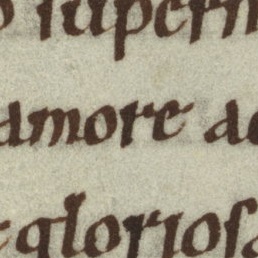 o supern
amore ac
gloriosa